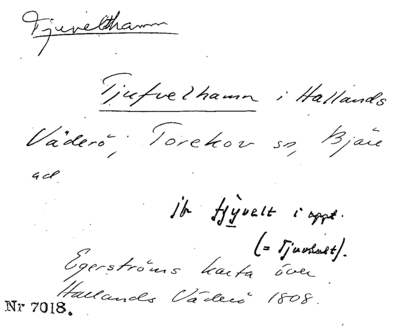 Tjuvelthamn
Tjufvelhamn i Hallands
Väderö, Torekov sn, Bjäre
hd
jfr tjyvelt i uppt.
(= Tjuvhult).
Egerströms karta över
Hallands Väderö 1808.
Nr 7018.